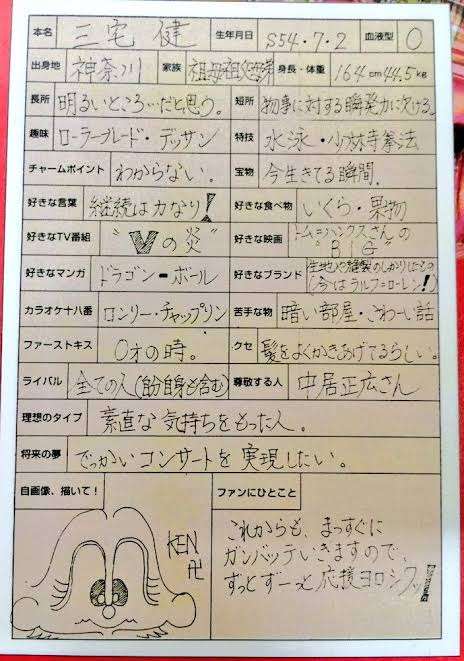 本名 三宅 健 生年月日 S54・7・2 血液型 O
出身地 神奈川 家族 祖母祖父母弟 身長・体重 164cm 44.5kg
長所 明るいところ…だと思う。 短所 物事に対する瞬発力に欠ける。
趣味 ローラーブレード・デッサン 特技 水泳・少林寺拳法
チャームポイント わからない。 宝物 今生きてる瞬間。
好きな言葉 継続は力なり! 好きな食べ物 いくら・果物
好きなTV番組 "Vの炎" 好きな映画 トム=ハンクスさんの"BIG"
好きなマンガ ドラゴン=ボール 好きなブランド 生地や縫製のしっかりしたもの(今はラルフ=ローレン!)
カラオケ十八番 ロンリー・チャップリン 苦手な物 暗い部屋・こわーい話
ファーストキス 0才の時。 クセ 髪をよくかきあげてるらしい。
ライバル 全ての人(自分自身も含む) 尊敬する人 中居正広さん
理想のタイプ 素直な気持ちをもった人。
将来の夢 でっかいコンサートを実現したい。
自画像、描いて!
KEN
卍
ファンにひとこと
これからも、まっすぐに
ガンバッテいきますので、
ずっとずーっと応援ヨロシクッ!